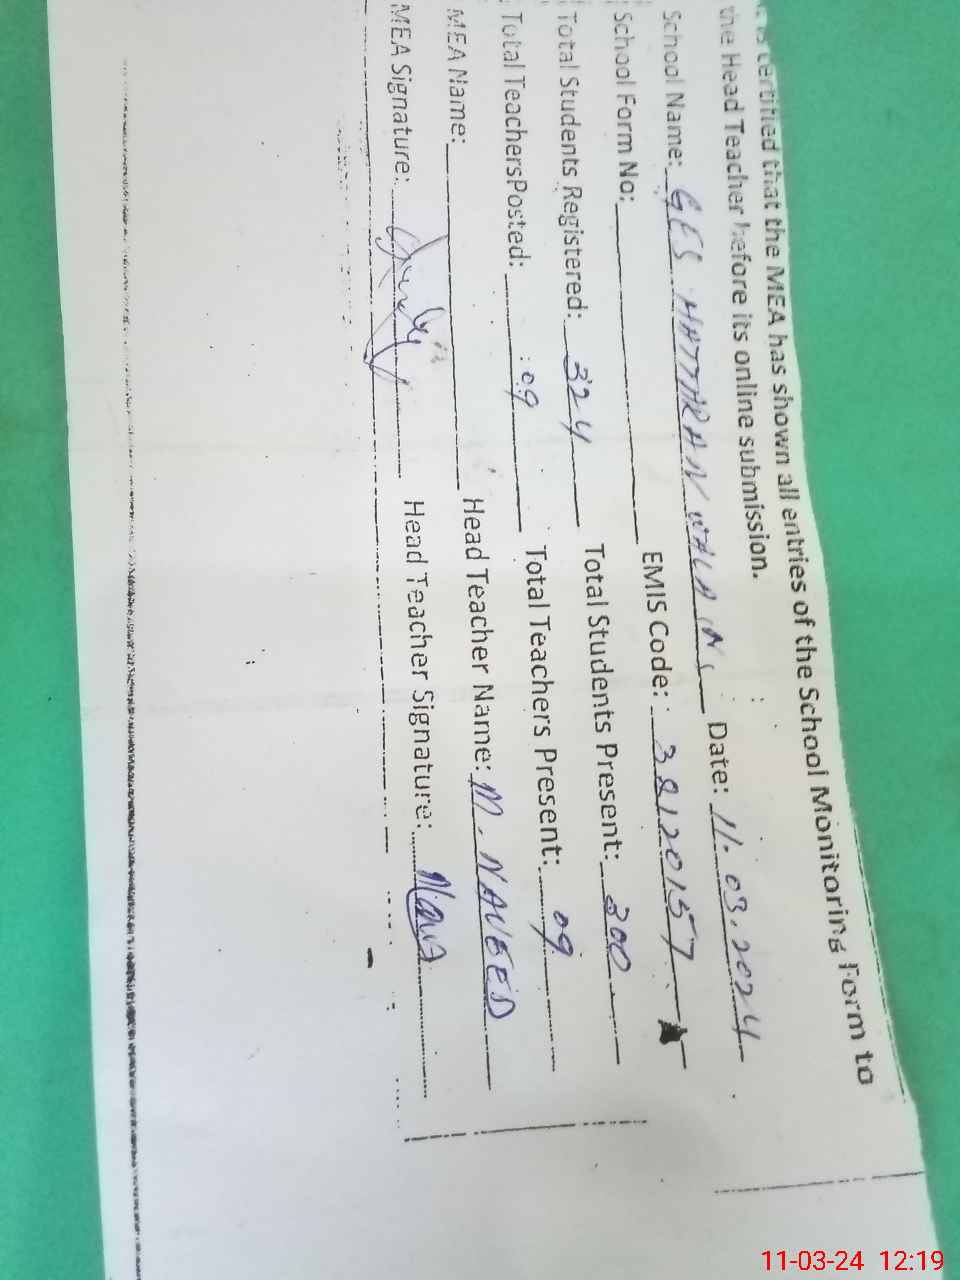 is certified that the MEA has shown all entries of the School Monitoring Form to
the Head Teacher before its online submission.
School Name: GES HATTARAN WALA Date: 11.03.2024
School Form No: EMIS Code: 38120157
Total Students Registered: 324 Total Students Present: 300
Total TeachersPosted: 09 Total Teachers Present: 09
MEA Name: Head Teacher Name: M. NAVEED
MEA Signature: Head Teacher Signature:
11-03-24 12:19